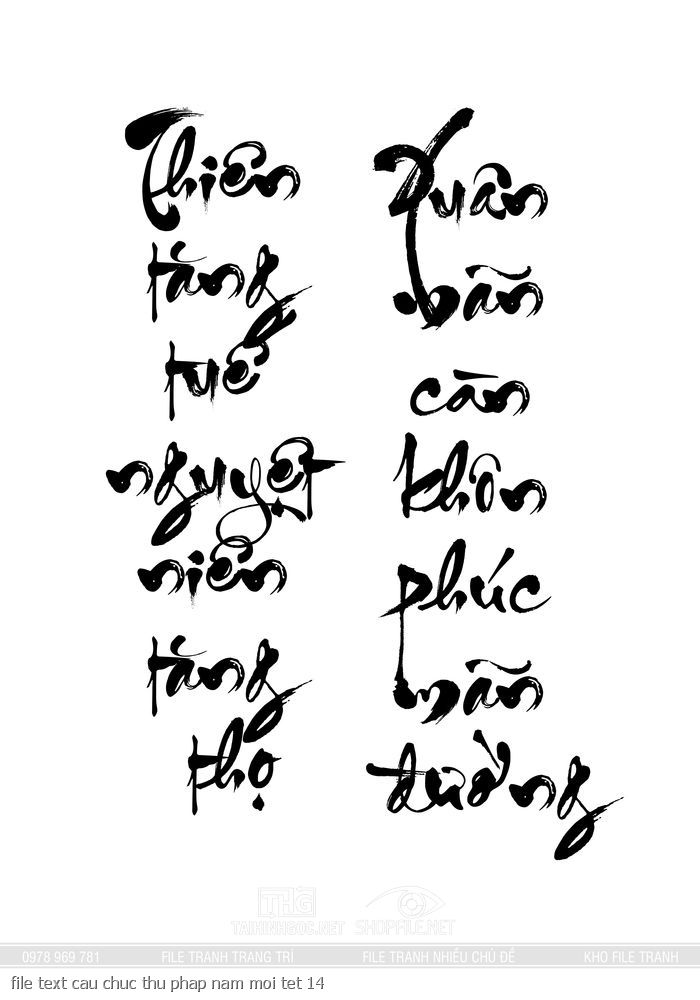 Thiên
tăng
tuế
nguyệt
niên
tăng
thọ
Xuân
mãn
càn
khôn
phúc
mãn
đường
THG
TAIHINHGOC.NET
SHOPFILE.NET
0978 969 781 FILE TRANH TRANG TRÍ FILE TRANH NHIỀU CHỦ ĐỀ KHO FILE TRANH
file text cau chuc thu phap nam moi tet 14